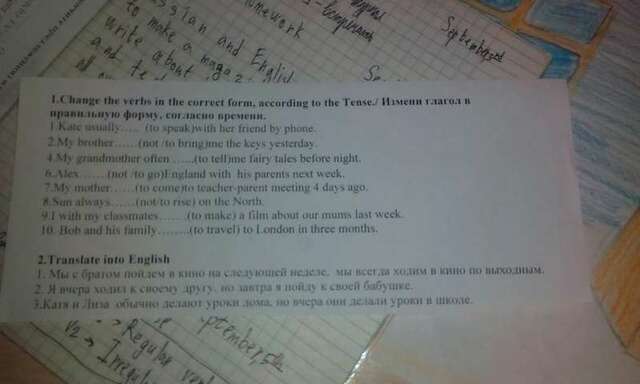 September
ssian and
homework
to make a maga
English
write about
and te
1.Change the verbs in the correct form, according to the Tense./ Измени глагол в
правильную форму, согласно времени.
1 Kate usually..... (to speak)with her friend by phone.
2.My brother......(not /to bring)me the keys yesterday.
4.My grandmother often .......(to tell)me fairy tales before night.
6.Alex.......(not /to go)England with his parents next week.
7.My mother.......(to come)to teacher-parent meeting 4 days ago.
8.Sun always......(not/to rise) on the North.
9.I with my classmates.......(to make) a film about our mums last week.
10. Bob and his family........(to travel) to London in three months.
2.Translate into English
1. Мы с братом пойдем в кино на следующей неделе, мы всегда ходим в кино по выходным.
2. Я вчера ходил к своему другу, но завтра я пойду к своей бабушке.
3.Катя и Лиза обычно делают уроки дома, но вчера они делали уроки в школе.
September,
Regular ver
V2 → Irregul